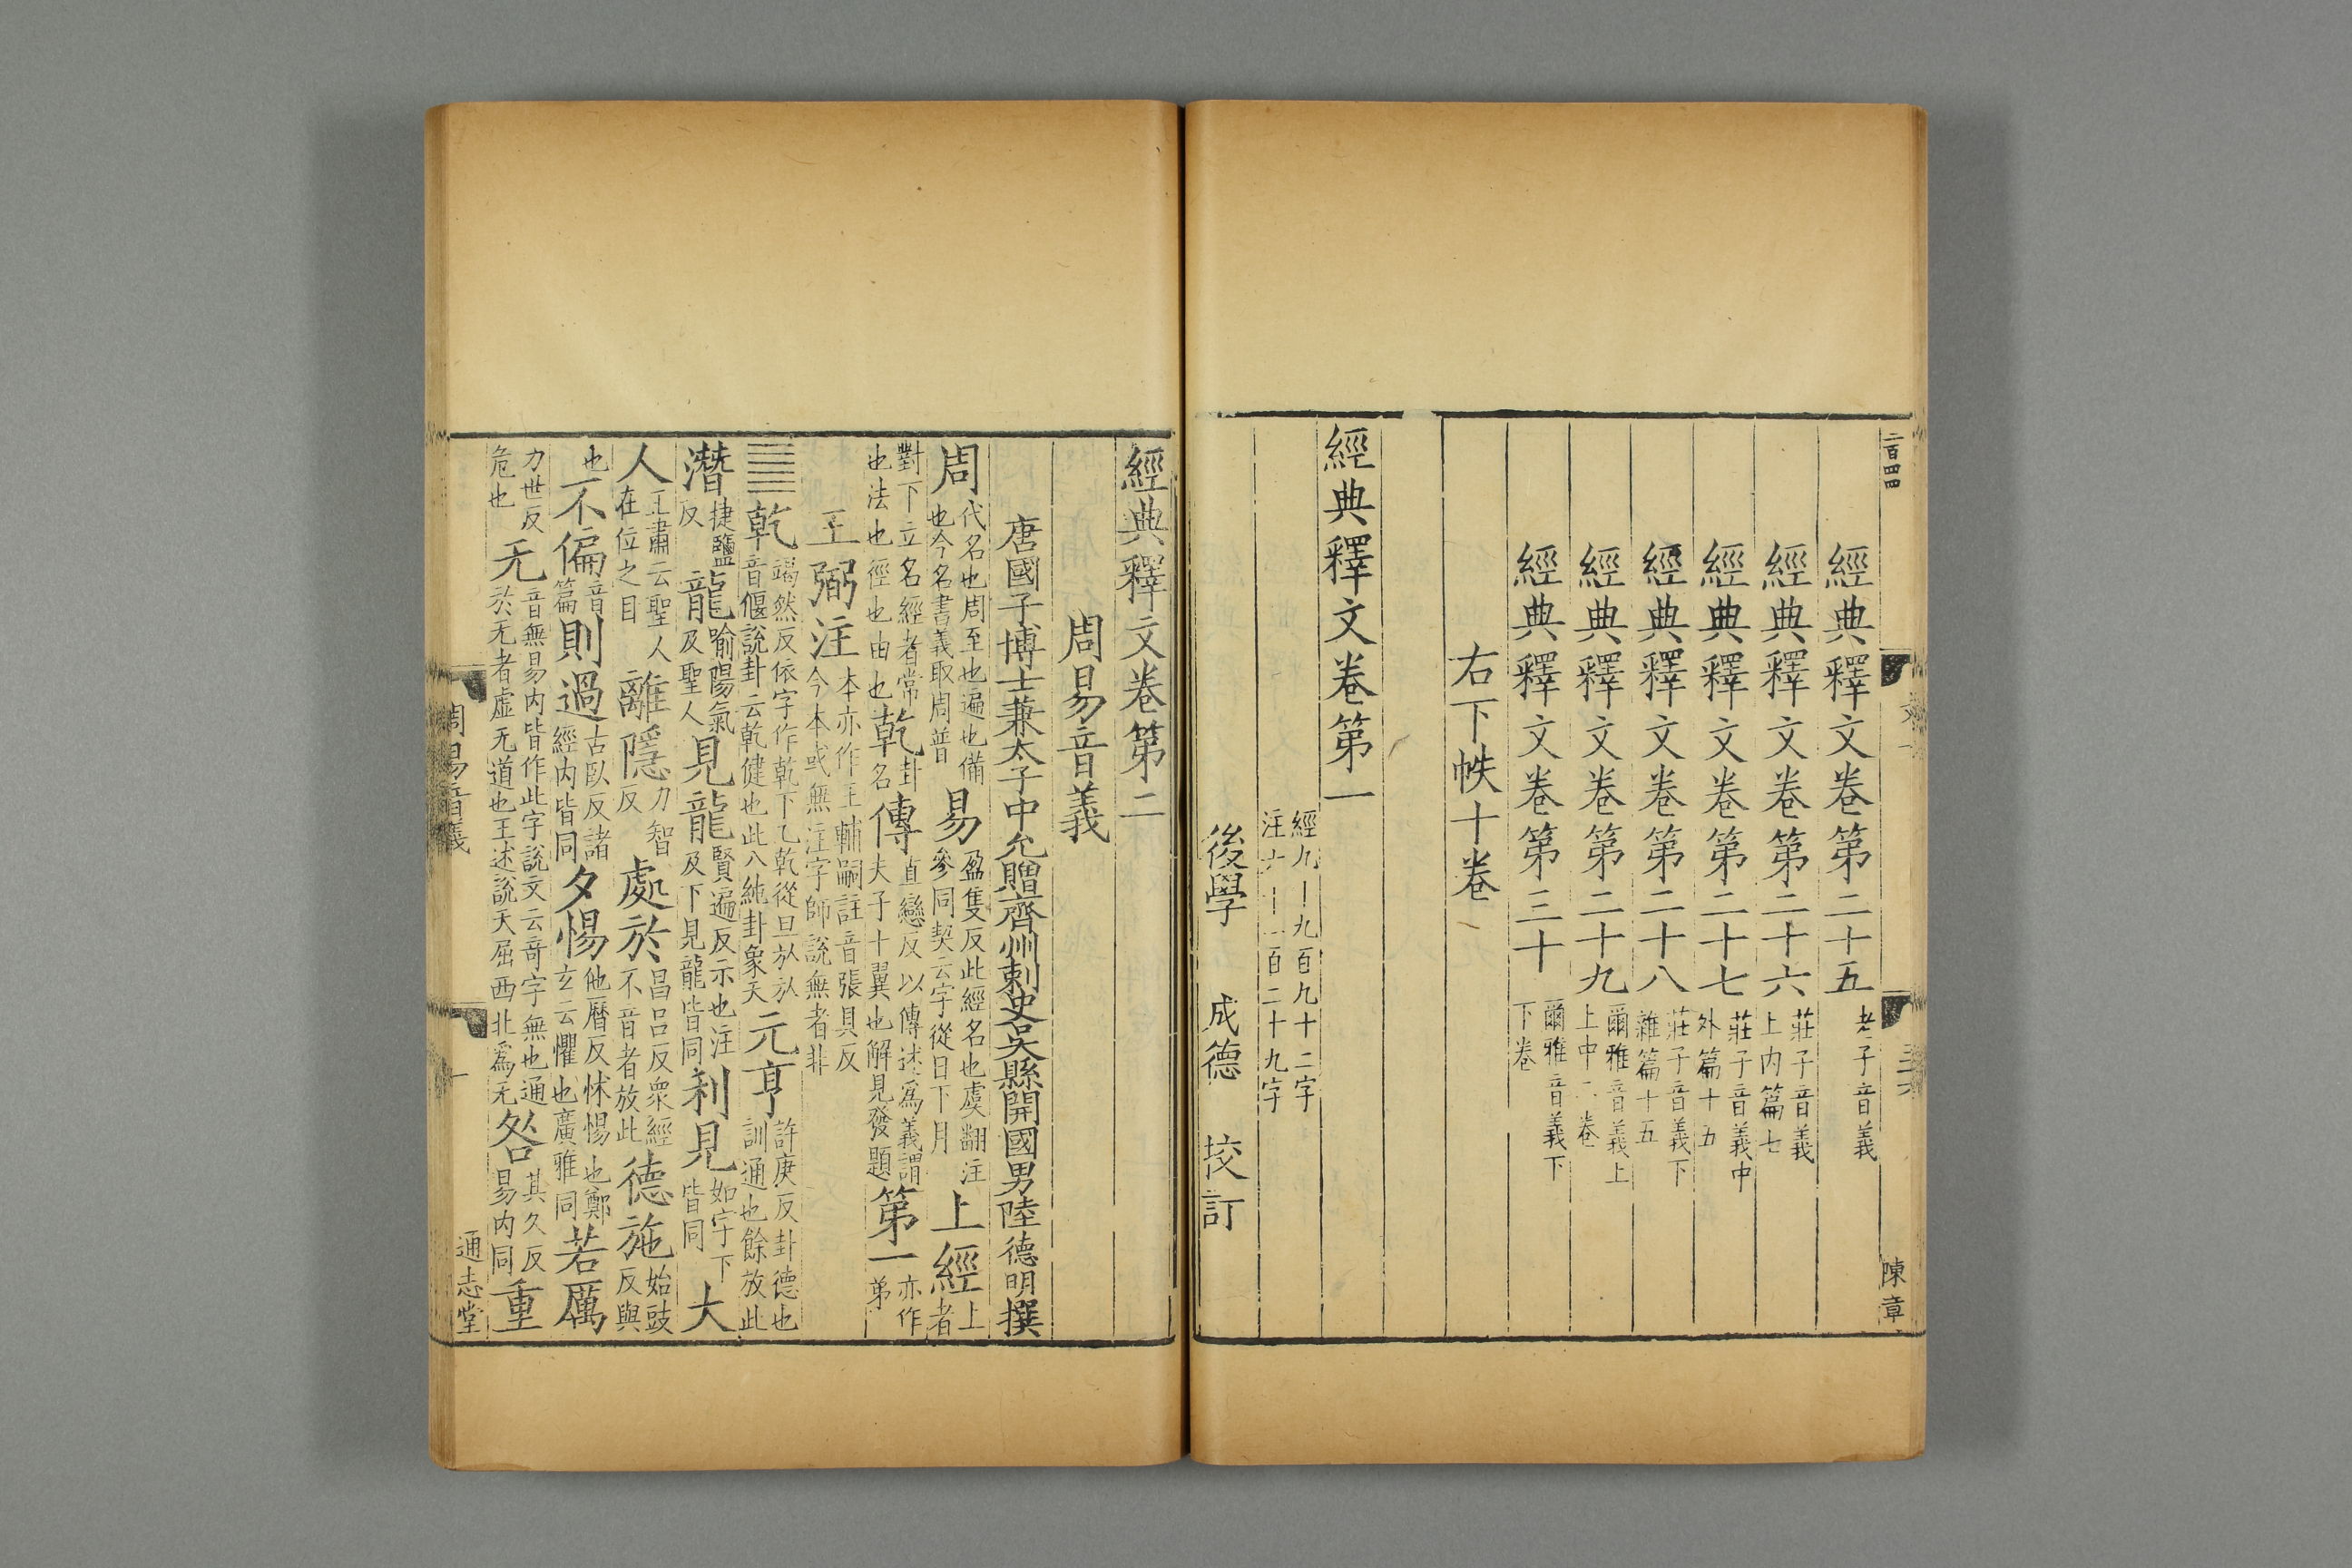 二百四四
陳章
經典釋文卷第二十五 老子音義
經典釋文卷第二十六 莊子音義上内篇七
經典釋文卷第二十七 莊子音義中外篇十五
經典釋文卷第二十八 莊子音義下雜篇十五
經典釋文卷第二十九 爾雅音義上上中二卷
經典釋文卷第三十 爾雅音義下下卷
右下帙十卷
經典釋文卷第一
經九千九百九十二字
注十一百二十九字
後學 成德 挍訂
經典釋文卷第二
周易音義
唐國子博士兼太子中允贈齊州刺史吳縣開國男陸德明撰
周代名也周至也遍也備也今名書義取周普易盈隻反此經名也虞翻注參同契云字從日下月上經上者
對下立名經者常也法也徑也由也乾卦名傳直戀反以傳述爲義謂夫子十翼也解見發題第一亦作弟
王弼注本亦作王輔嗣註音張具反今本或無注字師說無者非
䷀乾竭然反依字作乾下乙乾從旦㫃㫃音偃說卦云乾健也此八純卦象天元亨許庚反卦德也訓通也餘放此
潛捷鹽反龍喻陽氣及聖人見龍賢遍反示也注及下見龍皆同利見如字下皆同大
人王肅云聖人在位之目離隱力智反處於昌呂反衆經不音者放此德施始豉反與
也不偏音篇則過古臥反諸經内皆同夕惕他曆反怵惕也鄭玄云懼也廣雅同若厲
力世反危也无音無易内皆作此字說文云奇字無也通於无者虛无道也王述說天屈西北爲无咎其久反易内同重
周易音義
一
通志堂